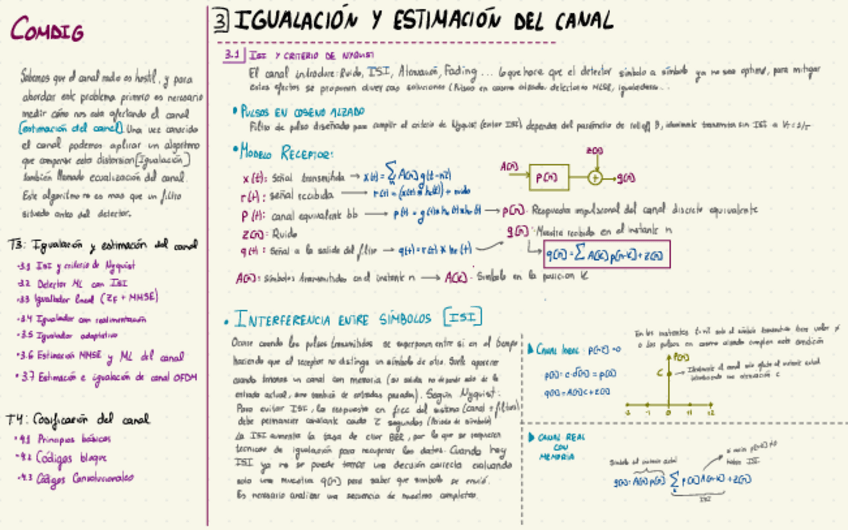 COMDIG
Sabemos que el canal radio es hostil, y para
abordar este problema primero es necesario
medir cómo nos está afectando el canal
[estimación del canal]. Una vez conocido
el canal podemos aplicar un algoritmo
que compense esta distorsión [Igualación]
también llamado ecualización del canal.
Este algoritmo no es mas que un filtro
situado antes del detector.
T3: Igualación y estimación del canal
·3.1 ISI y criterio de Nyquist
·3.2 Detector ML con ISI
·3.3 Igualador lineal (ZF + MMSE)
·3.4 Igualador con realimentación
·3.5 Igualador adaptativo
·3.6 Estimación MMSE y ML del canal
·3.7 Estimación e igualación de canal OFDM
T4: Codificación del canal
·4.1 Principios básicos
·4.2 Códigos bloque
·4.3 Códigos Convolucionales
3 IGUALACIÓN Y ESTIMACIÓN DEL CANAL
3.1 ISI Y CRITERIO DE NYQUIST
El canal introduce: Ruido, ISI, Atenuación, Fading... lo que hace que el detector símbolo a símbolo ya no sea optimo, para mitigar
estos efectos se proponen diversas soluciones
• PULSOS EN COSENO ALZADO
Filtro de pulso diseñado para cumplir el criterio de Nyquist (evitar ISI) depende del parámetro de rolloff β, idealmente transmite sin ISI a
• MODELO RECEPTOR:
x(t): Señal transmitida → x(t)=∑ A[n] g(t-nT)
r(t): señal recibida → + ruido
P(t): canal equivalente bb → p[n]: Respuesta impulsional del canal discreto equivalente
z[n]: Ruido
q(t): Señal a la salida del filtro → q[n]: Muestra recibida en el instante n
q[n]=∑ A[k] p[n-k]+z[n]
A[n]: símbolos transmitidos en el instante n → A[k]: Símbolo en la posicion k
A[n]
P[n]
z[n]
+
q[n]
• INTERFERENCIA ENTRE SÍMBOLOS [ISI]
Ocurre cuando los pulsos transmitidos se superponen entre si en el tiempo
haciendo que el receptor no distinga un símbolo de otro. Suele aparecer
cuando tenemos un canal con memoria (su salida no depende solo de la
entrada actual, sino también de entradas pasadas). Según Nyquist:
Para evitar ISI, la respuesta en frec del sistema (canal + filtros)
debe permanecer constante cada T segundos (periodo de símbolo)
La ISI aumenta la tasa de error BER, por lo que se requieren
tecnicas de igualación para recuperar los datos. Cuando hay
ISI ya no se puede tomar una decisión correcta evaluando
solo una muestra q[n] para saber que símbolo se envió.
Es necesario analizar una secuencia de muestras completas.
CANAL IDEAL:
p[n]= c·δ[n]
q[n]= A[n]c+z[n]
P[n]
C
-2 -1 0 1 2
CANAL REAL
CON
MEMORIA
Símbolo del instante actual
q[n]= A[n]p[0]+∑ p[k]A[n-k]+z[n]
ISI